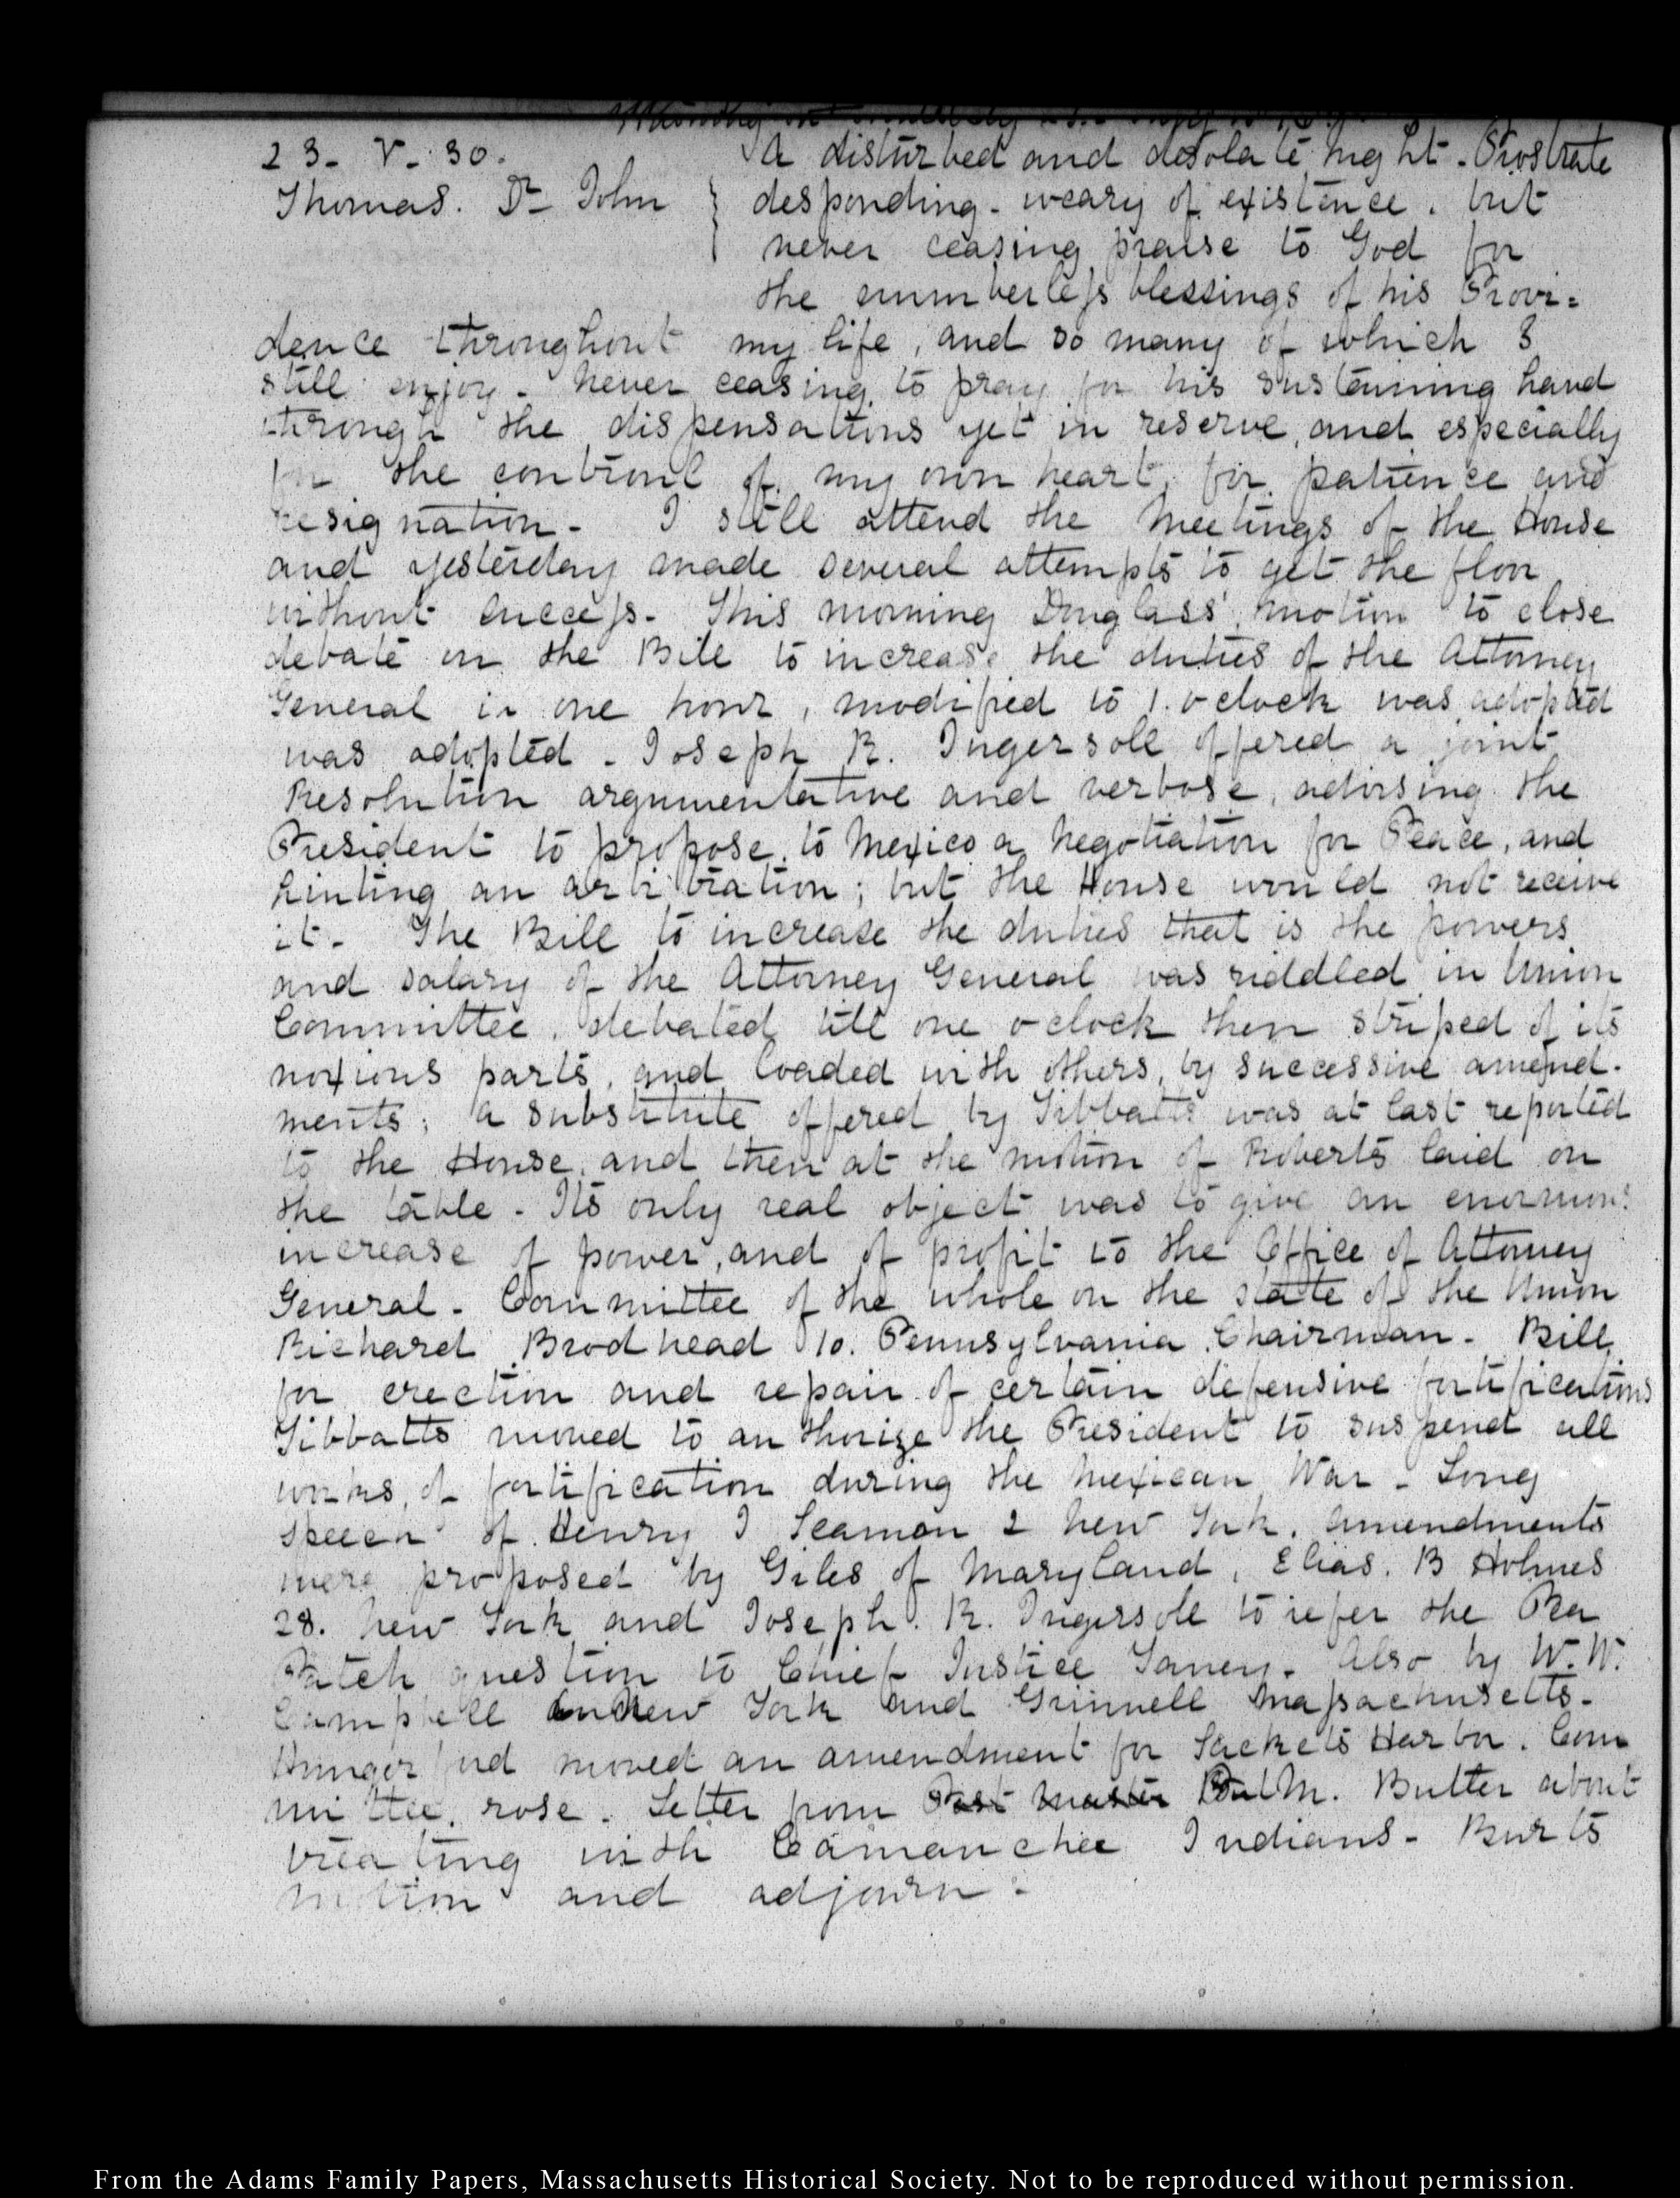 23. V. 30.
Thomas. Dr John
A disturbed and desolate night. Prostrate
desponding. weary of existence. but
never ceasing praise to God for
the numberless blessings of his Provi=
dence throughout my life, and so many of which I
still enjoy. never ceasing to pray for his sustaining hand
through the dispensations yet in reserve, and especially
for the controul of my own heart, for patience and
resignation. I still attend the meetings of the House
and yesterday made several attempts to get the floor
without success. This morning Douglass' motion to close
debate on the Bill to increase the duties of the Attorney
General in one hour, modified to 1. o clock was adopted
was adopted. Joseph R. Ingersoll offered a joint
Resolution argumentative and verbose, advising the
President to propose to Mexico a Negotiation for Peace, and
hinting an arbitration; but the House would not receive
it. The Bill to increase the duties that is the powers
and salary of the Attorney General was riddled in Union
Committee, debated till one o clock then striped of its
noxious parts, and loaded with others, by successive amend-
ments; a substitute offered by Tibbatts was at last reported
to the House, and then at the motion of Roberts laid on
the table. Its only real object was to give an enormous
increase of power, and of profit to the Office of Attorney
General. Committee of the whole on the state of the Union
Richard Brodhead 10. Pennsylvania Chairman. Bill
for erection and repair of certain defensive fortifications
Tibbatts moved to authorize the President to suspend all
works of fortification during the Mexican War. Long
speech of Henry I Seaman 2 New York. Amendments
were proposed by Giles of Maryland, Elias. B Holmes
28. New York and Joseph. R. Ingersoll to refer the Pea
Patch question to Chief Justice Taney. Also by W. W.
Campbell New York and Grinnell Massachusetts.
Hungerford moved an amendment for Sackets Harbor. Com
mittee. rose. Letter from Post Master M. Butler about
treating with Camanchee Indians. Burts
motion and adjourn.